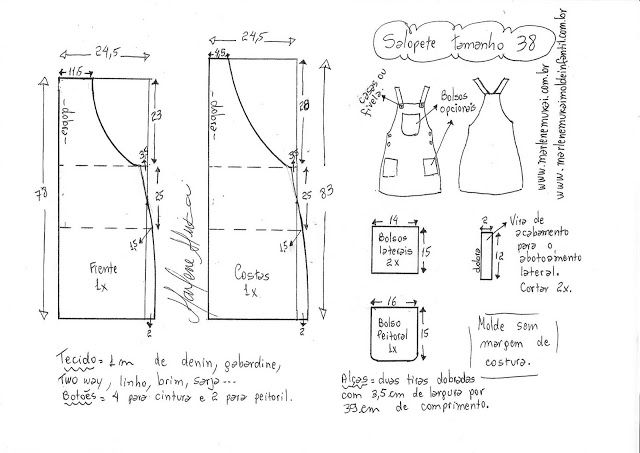 Salopete tamanho 38
24,5
11,5
-dobra-
23
3,5
78
25
1,5
Frente
1x
2
24,5
4,5
-dobra-
28
3,5
83
25
1,5
Costas
1x
2
Marlene Mukai
casas ou
fivela.
Bolsos
opcionais
www.marlenemukai.com.br
www.marlenemukaimoldeinfantil.com.br
14
Bolsos
laterais
2x
15
2
dobra
12
Vira de
acabamento
para o
abotoamento
lateral.
Cortar 2x.
16
Bolso
peitoral
1x
15
Molde sem
margem de
costura.
Tecido = 1m de denin, gabardine,
Two way, linho, brim, sarja...
Botões = 4 para cintura e 2 para peitoril.
Alças = duas tiras dobradas
com 3,5 cm de largura por
39 cm de comprimento.